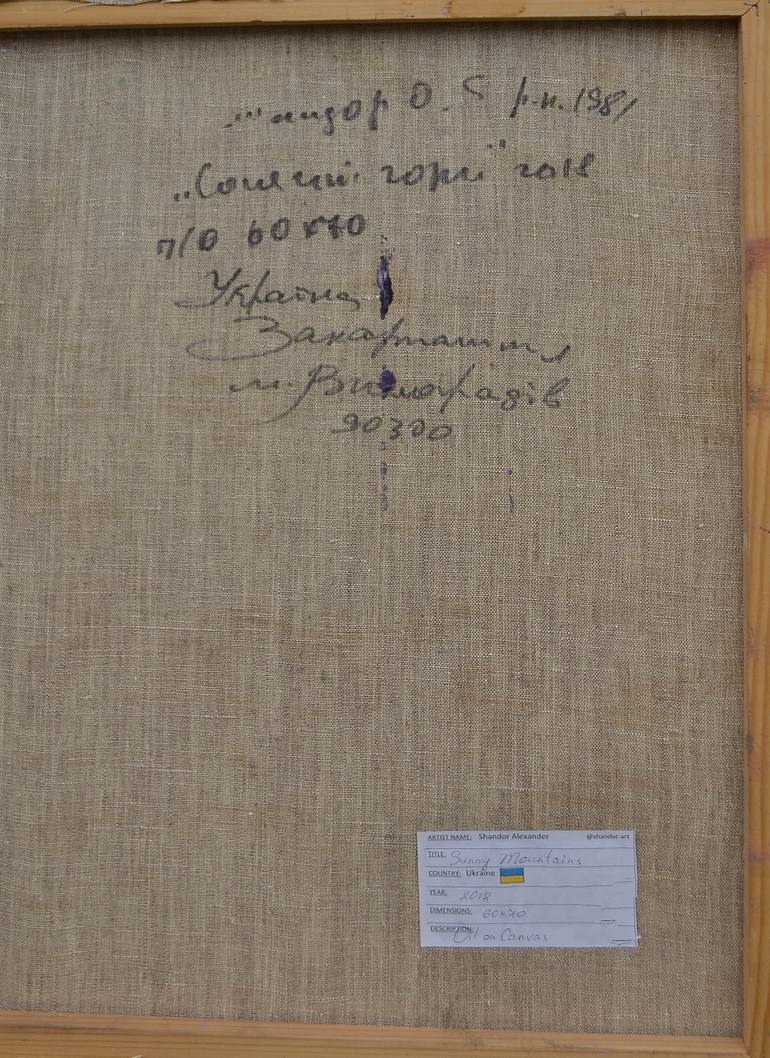 Шандор О. Р.Н. 1981
„Сонячні гори" 2018
П/О 60х70
Україна
Закарпаття
м. Виноградів
90300
ARTIST NAME: Shandor Alexander @shandor.art
TITLE: Sunny Mountains
COUNTRY: Ukraine
YEAR: 2018
DIMENSIONS: 60x70
DESCRIPTION: Oil on Canvas